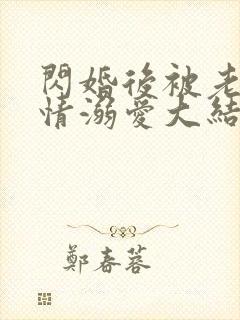 閃婚後被老
情溺愛大結
鄭春蓉